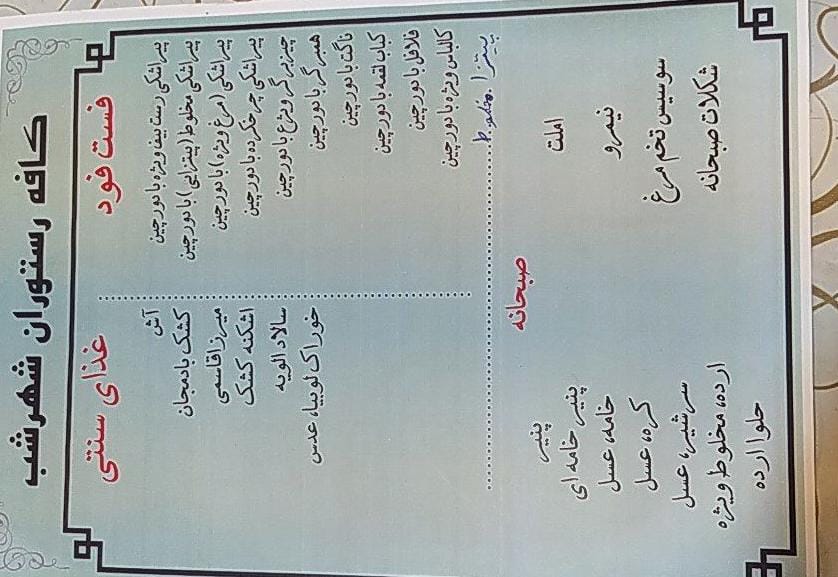 کافه رستوران شهر شب
فست فود
پیراشکی رست بیف ویژه با دورچین
پیراشکی مخلوط (پیتزایی) با دورچین
پیراشکی (مرغ ویژه) با دورچین
پیراشکی چرخکرده با دورچین
چیزبرگر ویژع با دورچین
همبرگر با دورچین
ناگت با دورچین
کباب لقمه با دورچین
فلافل با دورچین
کالباس ویژه با دورچین
پیتزا مخصوص
غذای سنتی
آش
کشک بادمجان
میرزاقاسمی
اشکنه کشک
سالاد الویه
خوراک لوبیا، عدس
صبحانه
املت
نیمرو
سوسیس تخم مرغ
شکلات صبحانه
پنیر
پنیر خامه ای
خامه، عسل
کره، عسل
سرشیر، عسل
ارده، مخلوط ویژه
حلوا ارده